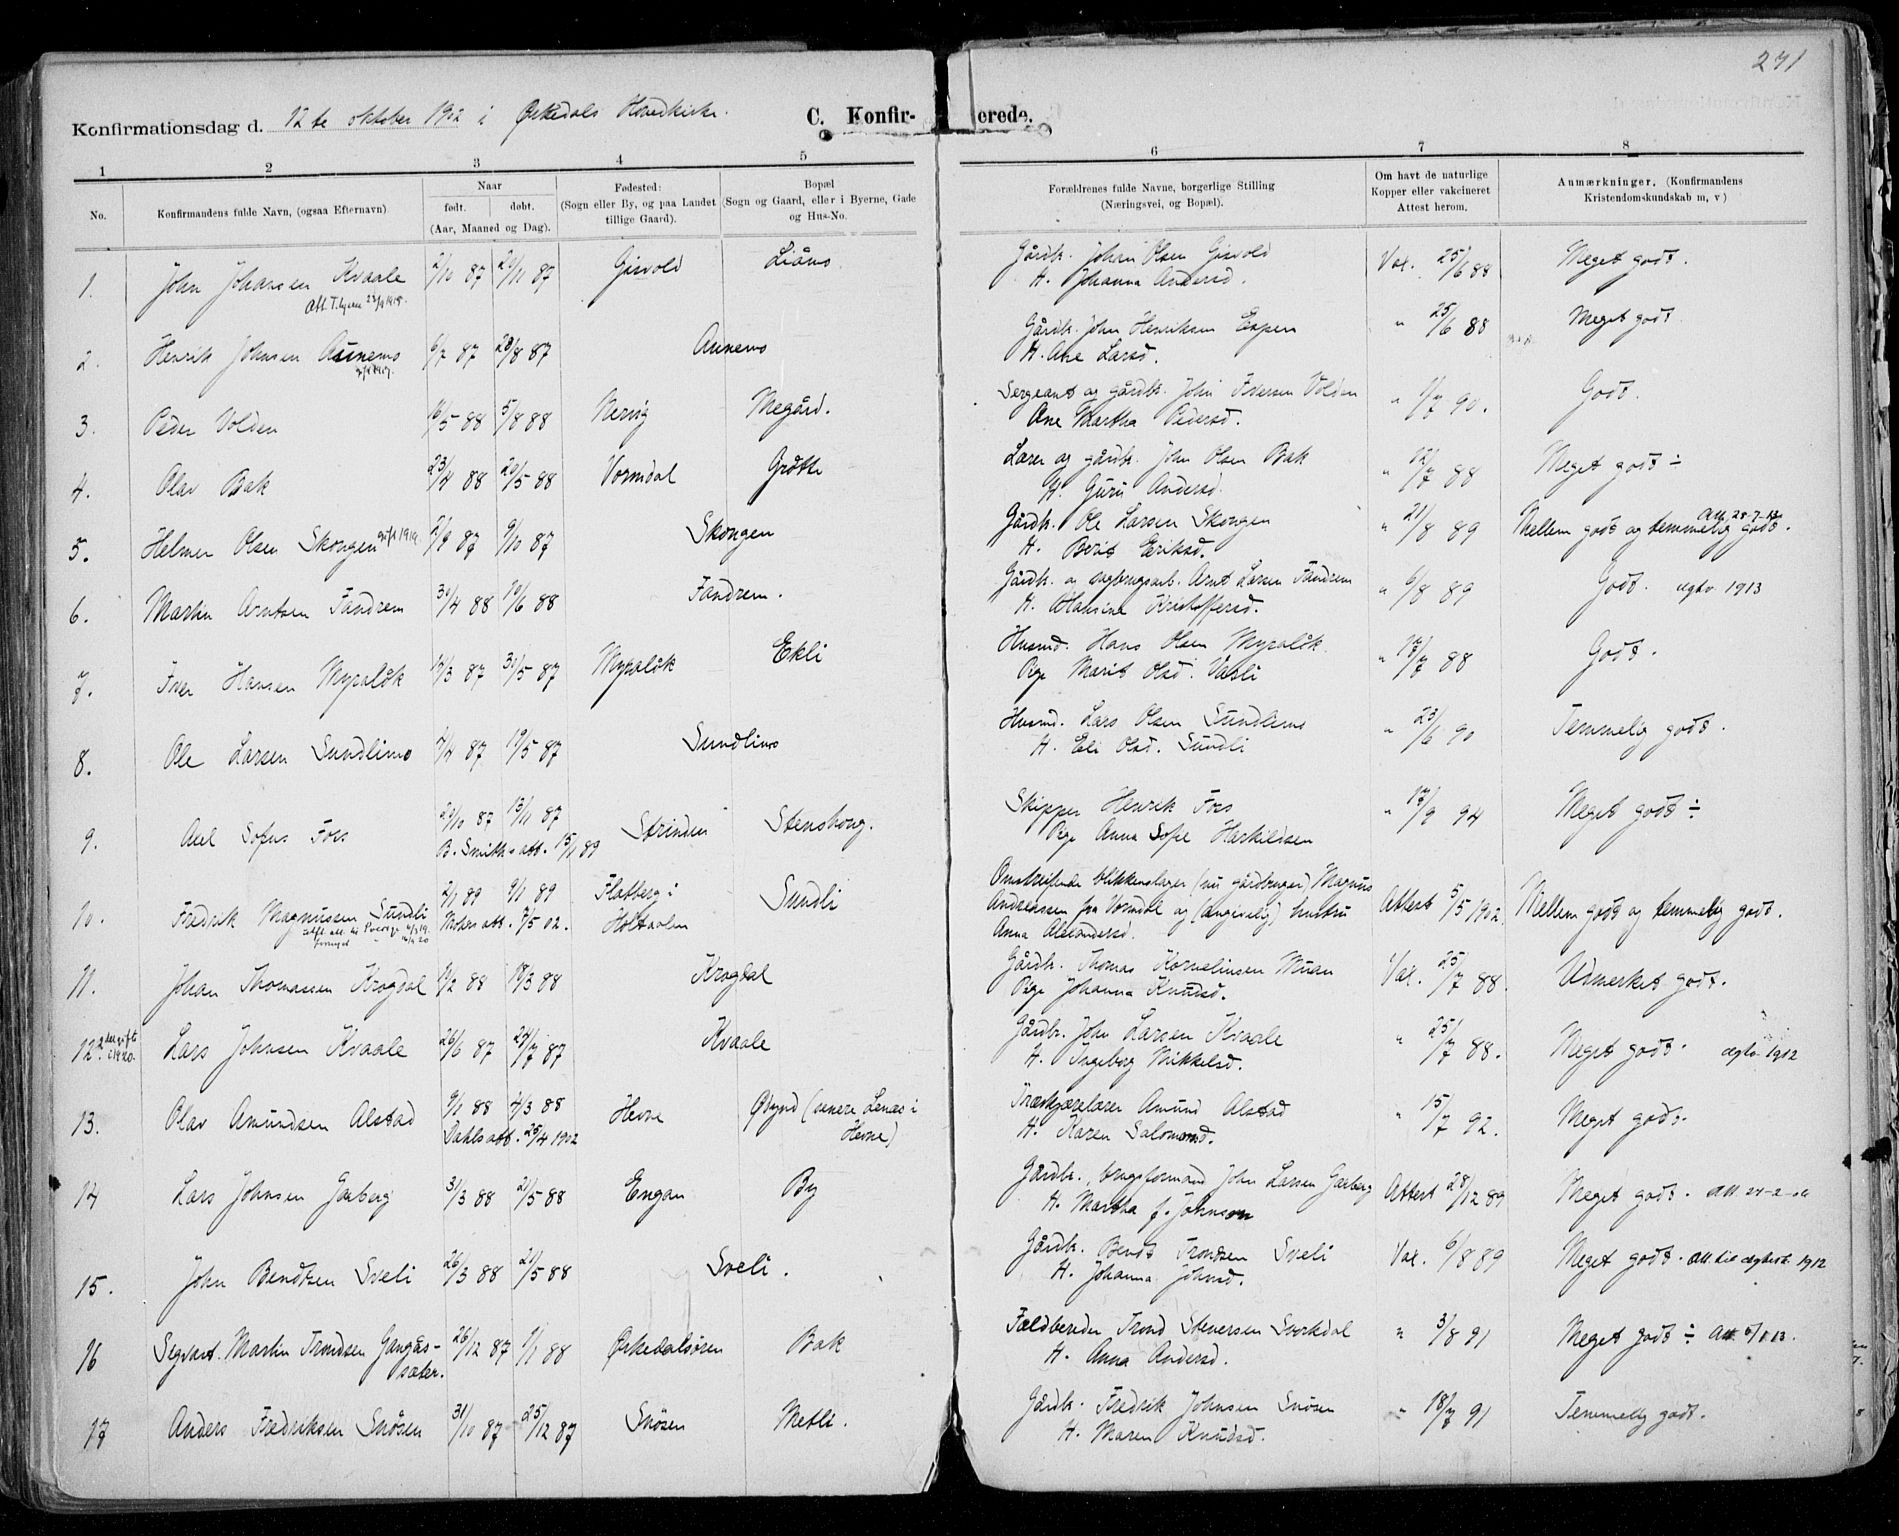 271
Konfirmationsdag d. 12te oktober 1902 i Orkedals Hovedkirke. C. Konfir- erede.
1 2 3 4 5 6 7 8
No.
Konfirmandens fulde Navn, (ogsaa Efternavn)
Naar
født. døbt.
(Aar, Maaned og Dag).
Fødested:
(Sogn eller By, og paa Landet
tillige Gaard).
Bopæl
(Sogn og Gaard, eller i Byerne, Gade
og Hus-No.
Forældrenes fulde Navne, borgerlige Stilling
(Næringsvei, og Bopæl).
Om havt de naturlige
Kopper eller vakcineret
Attest herom.
Anmærkninger. (Konfirmandens
Kristendomskundskab m, v)
1. John Johansen Kvaale 2/10 87 21/11 87 Gisvold Liåns Gårdb. Johan Olsen Gisvold Vax. 25/6 88 Meget godt.
H. Johanna Andersd.
2. Henrik Johnsen Aunemo 6/7 87 28/8 87 Aunemo Gårdb. John Henriksen Espen " 25/6 88 Meget godt
H. Ane Larsd.
3. Peder Volden 16/5 88 5/8 88 Nervig Megård. Sergeant og gårdb. John Iversen Volden " 1/7 90. Godt.
Ane Martha Pedersd.
4. Olav Bak 23/4 88 20/5 88 Vormdal Grøtte Lærer og gårdb. John Olsen Bak " 12/7 88 Meget godt ÷
H. Guru Andersd.
5. Helmer Olsen Skongen gift 1919 2/9 87 9/10 87 Skongen Gårdb. Ole Larsen Skongen " 21/8 89 Mellem godt og temmelig godt.
H. Berit Eriksd.
6. Martin Arntsen Fandrem 30/4 88 10/6 88 Fandrem. Gårdb. og sagbrugsarb. Arnt Larsen Fandrem " 6/8 89 Godt. ægtv 1913
H. Hansine Kristoffersd.
7. Iver Hansen Myraløk 12/3 87 31/5 87 Myraløk Ekli Husmd. Hans Olsen Myraløk. " 17/7 88 Godt.
Pge Marit Olsd. Vasli
8. Ole Larsen Sundlimo 7/4 87 19/5 87 Sundlimo Husmd. Lars Olsen Sundlimo " 23/6 90 Temmelig godt.
H. Eli Olsd. Sundli
9. Axel Sofus Fors 22/10 87 13/11 87 Strinden Stensborg. Skipper Henrik Fors " 17/9 94 Meget godt ÷
B. Smiths att. 15/1 89 Pge Anna Sofie Haskildsen
10. Fredrik Magnussen Sundli 2/1 89 9/1 89 Flatberg i Sundli Omstreifende blikkenslager (nu gårdbruger) Magnus
7/5 02. Holtaalen Andreassen fra Vormdal og (angivelig) hustru Attest 5/5 1902. Mellem godt og temmelig godt.
Anna Alexandersd.
11. Johan Thomassen Krogdal 19/2 88 18/3 88 Krogdal Gårdb. Thomas Korneliusen Muan Vax. 25/7 88. Udmerket godt.
Pge Johanna Knudsd.
12. Lars Johnsen Kvaale 26/6 87 24/7 87 Kvaale Gårdb. John Larsen Kvaale " 25/7 88. Meget godt. ægtv 1912
H. Ingeborg Mikkelsd.
13. Olav Amundsen Alstad 9/2 88 4/3 88 Hevne Øbynd (senere Lenes i Træskjærelærer Amund Alstad " 15/7 92. Meget godt.
Dahls att. 25/4 1902 Hevne) H. Karen Salomond.
14 Lars Johnsen Garberg 31/3 88 21/5 88 Engan By Gårdb., brugsformand John Larsen Garberg Attest 28/12 89 Meget godt.
H. Martha f. Johnsen
15. John Bendtsen Sveli 26/3 88 21/5 88 Sveli. Gårdb. Bendt Trondsen Sveli Vax. 6/8 89 Meget godt. att. til ægtesk. 1912
H. Johanna Johnsd.
16 Segvart Martin Trondsen Gangås- 26/12 87 1/1 88 Orkedalsøren Bak Fældbereder Trond Steversen Svorkdal " 3/8 91 Meget godt ÷
sæter. H. Anna Andersd.
17 Anders Fredriksen Snøsen 31/10 87 25/12 87 Snøsen Metli. Gårdb. Fredrik Johnsen Snøsen " 18/7 91 Temmelig godt.
H. Maren Knudsd.